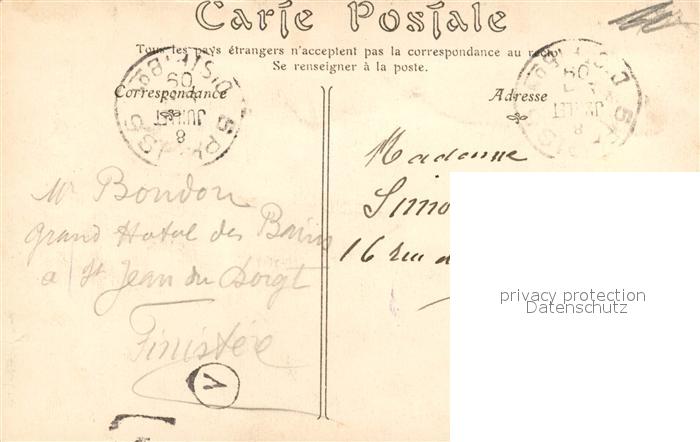 Carte Postale
Tous les pays étrangers n'acceptent pas la correspondance au recto
Se renseigner à la poste.
Correspondance
Mr Bondon
Grand Hotel des Bains
a St Jean du Doigt
Finistère
V
Adresse
Madame
Simo
16 rue d
privacy protection
Datenschutz
JUILLET
8
JUILLET
8